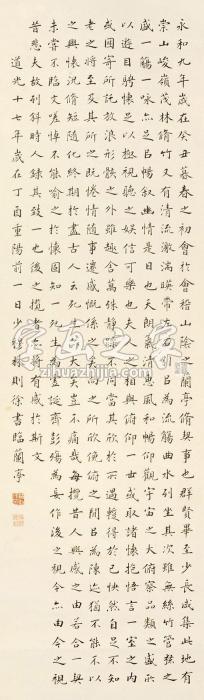 永和九年歲在癸丑暮春之初會於會稽山陰之蘭亭脩禊事也群賢畢至少長咸集此地有
崇山峻嶺茂林脩竹又有清流激湍暎帶左右引㠯為流觴曲水列坐其次雖無絲竹管弦之
盛一觴一咏亦足㠯暢敘幽情是日也天朗氣清惠風和暢仰觀宇宙之大俯察品類之盛所
以遊目騁懷足以極視聽之娛信可樂也夫人之相與俯仰一世或取諸懷抱悟言一室之內
或因寄所託放浪形骸之外雖趣舍萬殊靜躁不同當其欣於所遇暫得於己怏然自足不知
老之將至及其所之既倦情隨事遷感慨係之矣向之所欣俛仰之間㠯為陳迹猶不能不以
之興懷況脩短隨化終期於盡古人云死生亦大矣豈不痛哉每攬昔人興感之由若合一契
未嘗不臨文嗟悼不能喻之於懷固知一死生為虛誕齊彭殤為妄作後之視今亦由今之視
昔悲夫故列敘時人錄其致一也後之攬者亦將有感於斯文
道光十七年歲在丁酉重陽前一日少穆林則徐書臨蘭亭
zihuazhijia.com